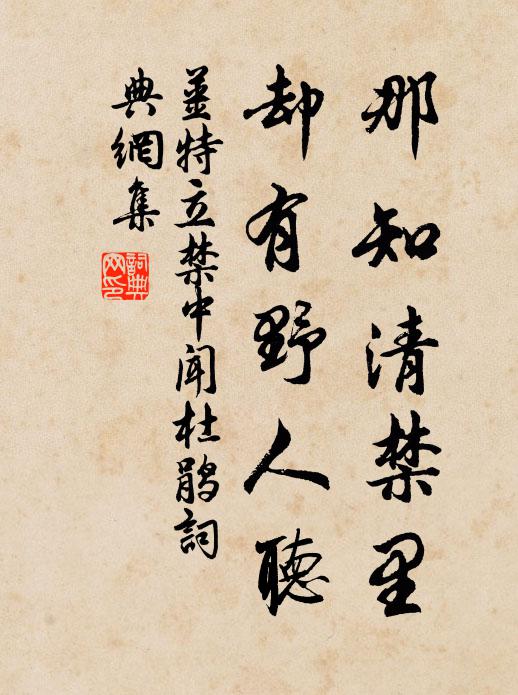 那知清禁里
却有野人聽
姜特立禁中闻杜鹃詞
典網集
詞典网印